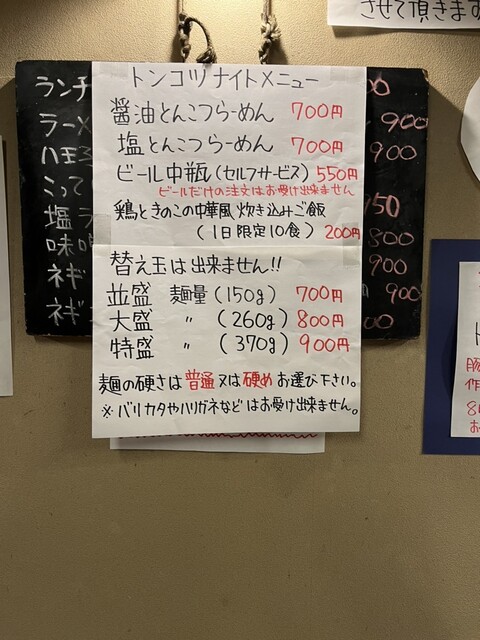 させて頂きます
トンコツナイトメニュー
醤油とんこつらーめん 700円
塩とんこつらーめん 700円
ビール中瓶(セルフサービス) 550円
ビールだけの注文はお受け出来ません
鶏ときのこの中華風炊き込みご飯
(1日限定10食) 200円
替え玉は出来ません!!
並盛 麺量(150g) 700円
大盛 〃 (260g) 800円
特盛 〃 (370g) 900円
麺の硬さは普通又は硬めお選び下さい。
※バリカタやハリガネなどはお受け出来ません。
ランチ
ラーメ 900
八王子 900
こって 950
塩ラ 800
味噌 900
ネギ 900
ネギ